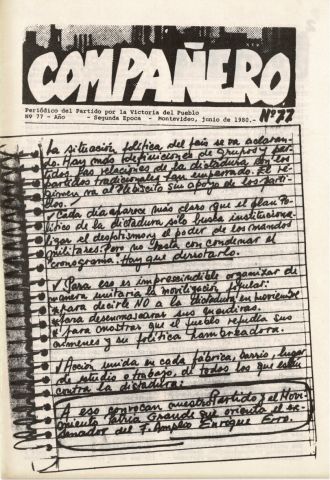 COMPAÑERO
Periódico del Partido por la Victoria del Pueblo
Nº 77 - Año - Segunda Epoca - Montevideo, junio de 1980.-
Nº77
La situación política del país se va aclaran-
do. Hay más definiciones de grupos y par-
tidos. Las relaciones de la dictadura con los
partidos tradicionales han empeorado. El ré-
gimen va al Plebiscito sin apoyo de los parti-
dos.
✓ Cada día aparece más claro que el plan Po-
lítico de la dictadura sólo busca instituciona-
lizar el despotismo y el poder de los mandos
militares. Pero no basta con condenar el
cronograma: Hay que derrotarlo.
✓ Para eso es imprescindible organizar de
manera unitaria la movilización popular:
para decirle NO a la Dictadura en noviembre
para desenmascarar sus mentiras.
para mostrar que el pueblo repudia sus
crímenes y su política hambreadora.
✓ Acción unida en cada fábrica, barrio, lugar
de estudio o trabajo, de todos los que estén
contra la dictadura:
A eso convocan nuestro Partido y el Movi-
miento Patria Grande que orienta el ex-
senador del F. Amplio Enrique Erro.